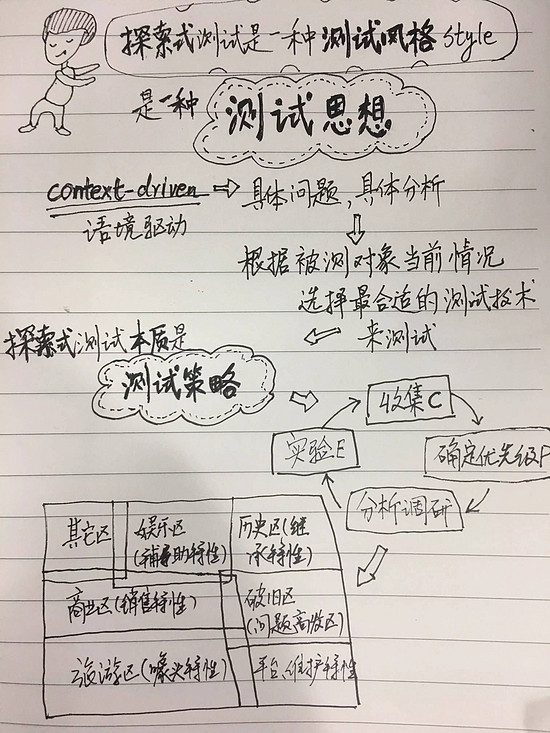 探索式测试是一种测试风格 style
是一种 测试思想
context-driven ⇨ 具体问题,具体分析
语境驱动
根据被测对象当前情况
选择最合适的测试技术
来测试
探索式测试本质是
测试策略
收集C
实验E
确定优先级P
分析调研
其它区
娱乐区
(辅助特性)
历史区(继
承特性)
商业区(销售特性)
破旧区
(问题高发区)
旅游区(噱头特性)
平台、维护特性